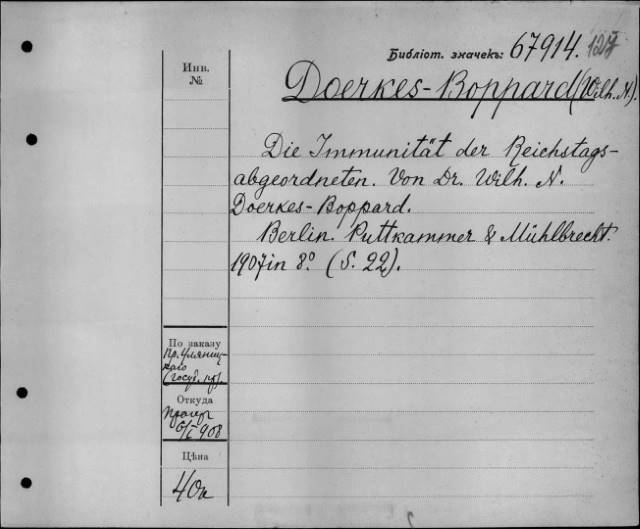 Библіот. значекъ: 67914.
Инв.
№
Doerkes-Boppard (Wilh. N.).
Die Immunität der Reichstags-
abgeordneten. Von Dr. Wilh. N.
Doerkes-Boppard.
Berlin. Puttkammer & Mühlbrecht.
1907 in 8° (S. 22).
По заказу
пр. Уляниц-
каго
(госуд. пр).
Откуда
908
Цѣна
40к